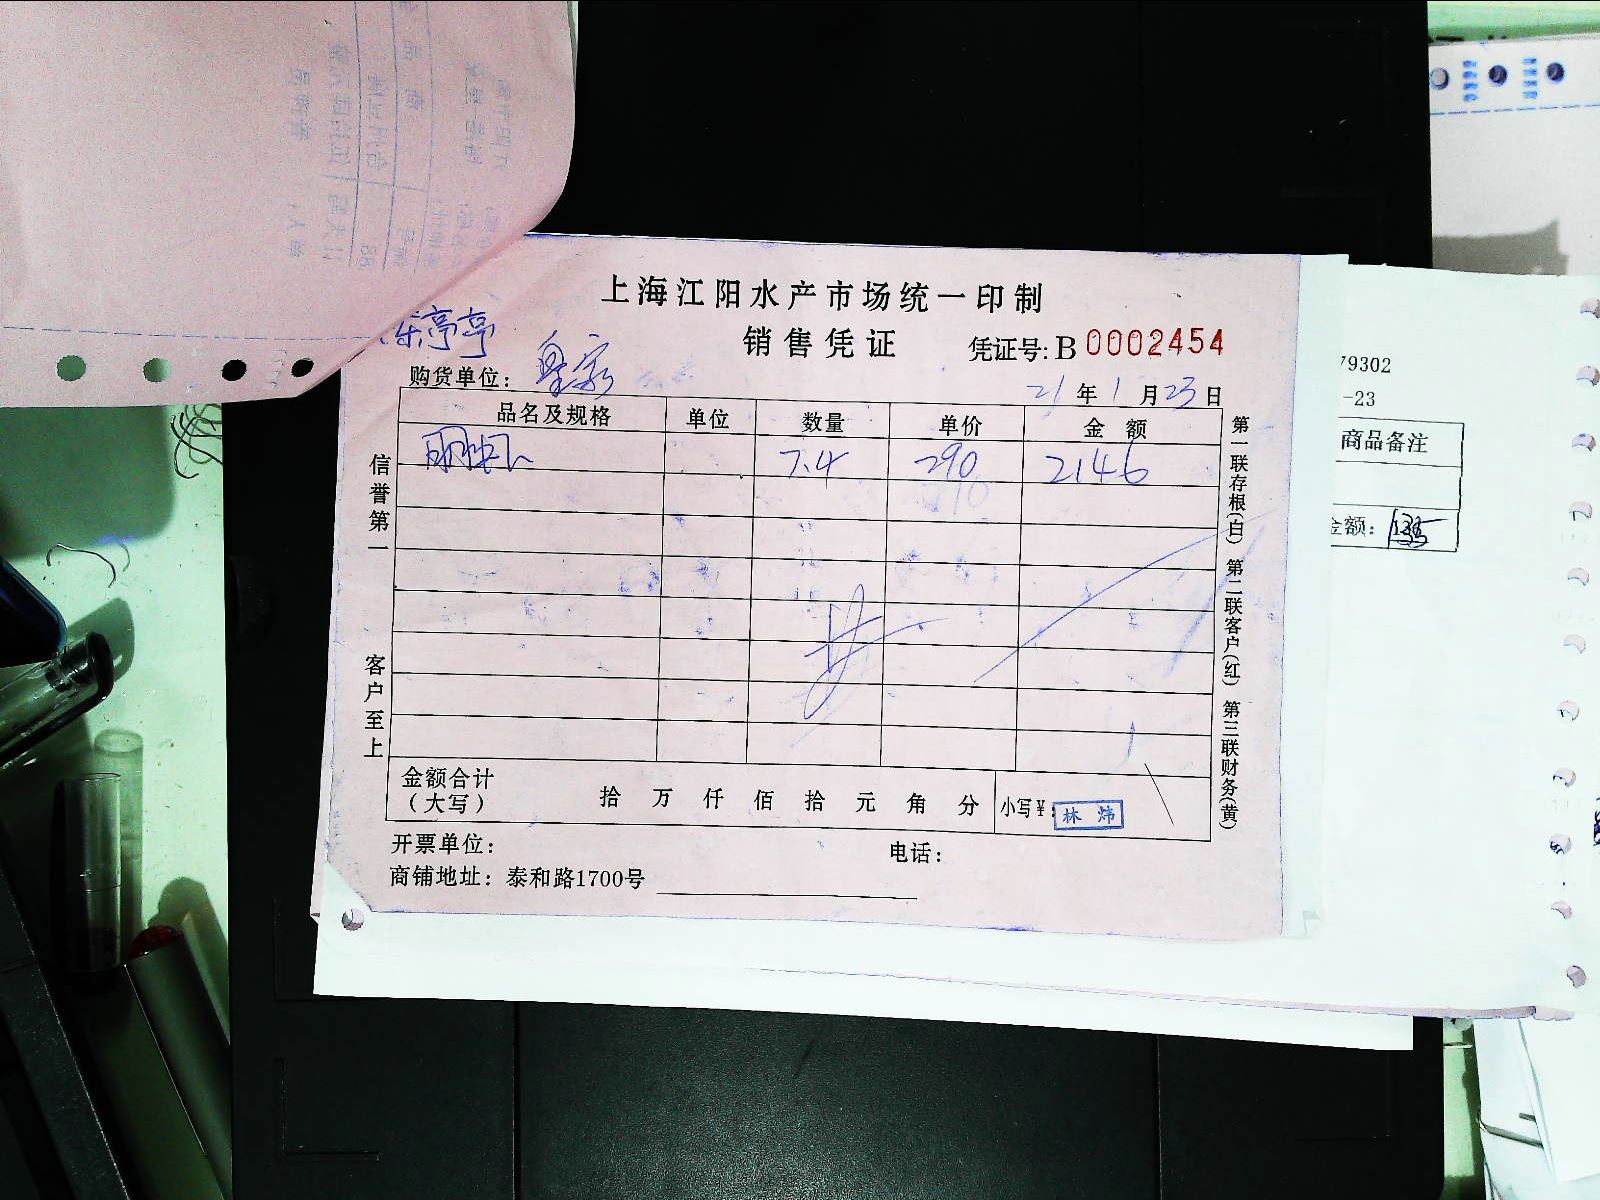 上海江阳水产市场统一印制
销售凭证 凭证号: B 0002454
亭亭
购货单位: 皇家
21年1月23日
品名及规格 单位 数量 单价 金额
7.4 290 2146
信誉第一
客户至上
第一联存根(白) 第二联客户(红) 第三联财务(黄)
金额合计
(大写) 拾 万 仟 佰 拾 元 角 分 小写¥: 林炜
开票单位: 电话:
商铺地址: 泰和路1700号
79302
-23
商品备注
金额: